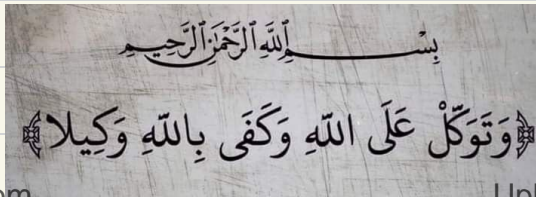 بِسْمِ ٱللَّهِ ٱلرَّحْمَٰنِ ٱلرَّحِيمِ
﴿وَتَوَكَّلْ عَلَى اللّهِ وَكَفَى بِاللّهِ وَكِيلا﴾